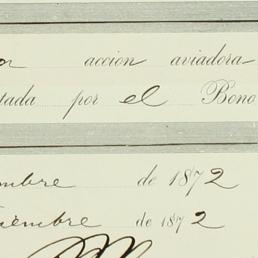 accion aviadora
tada por el Bono
mbre de 1872
iembre de 1872